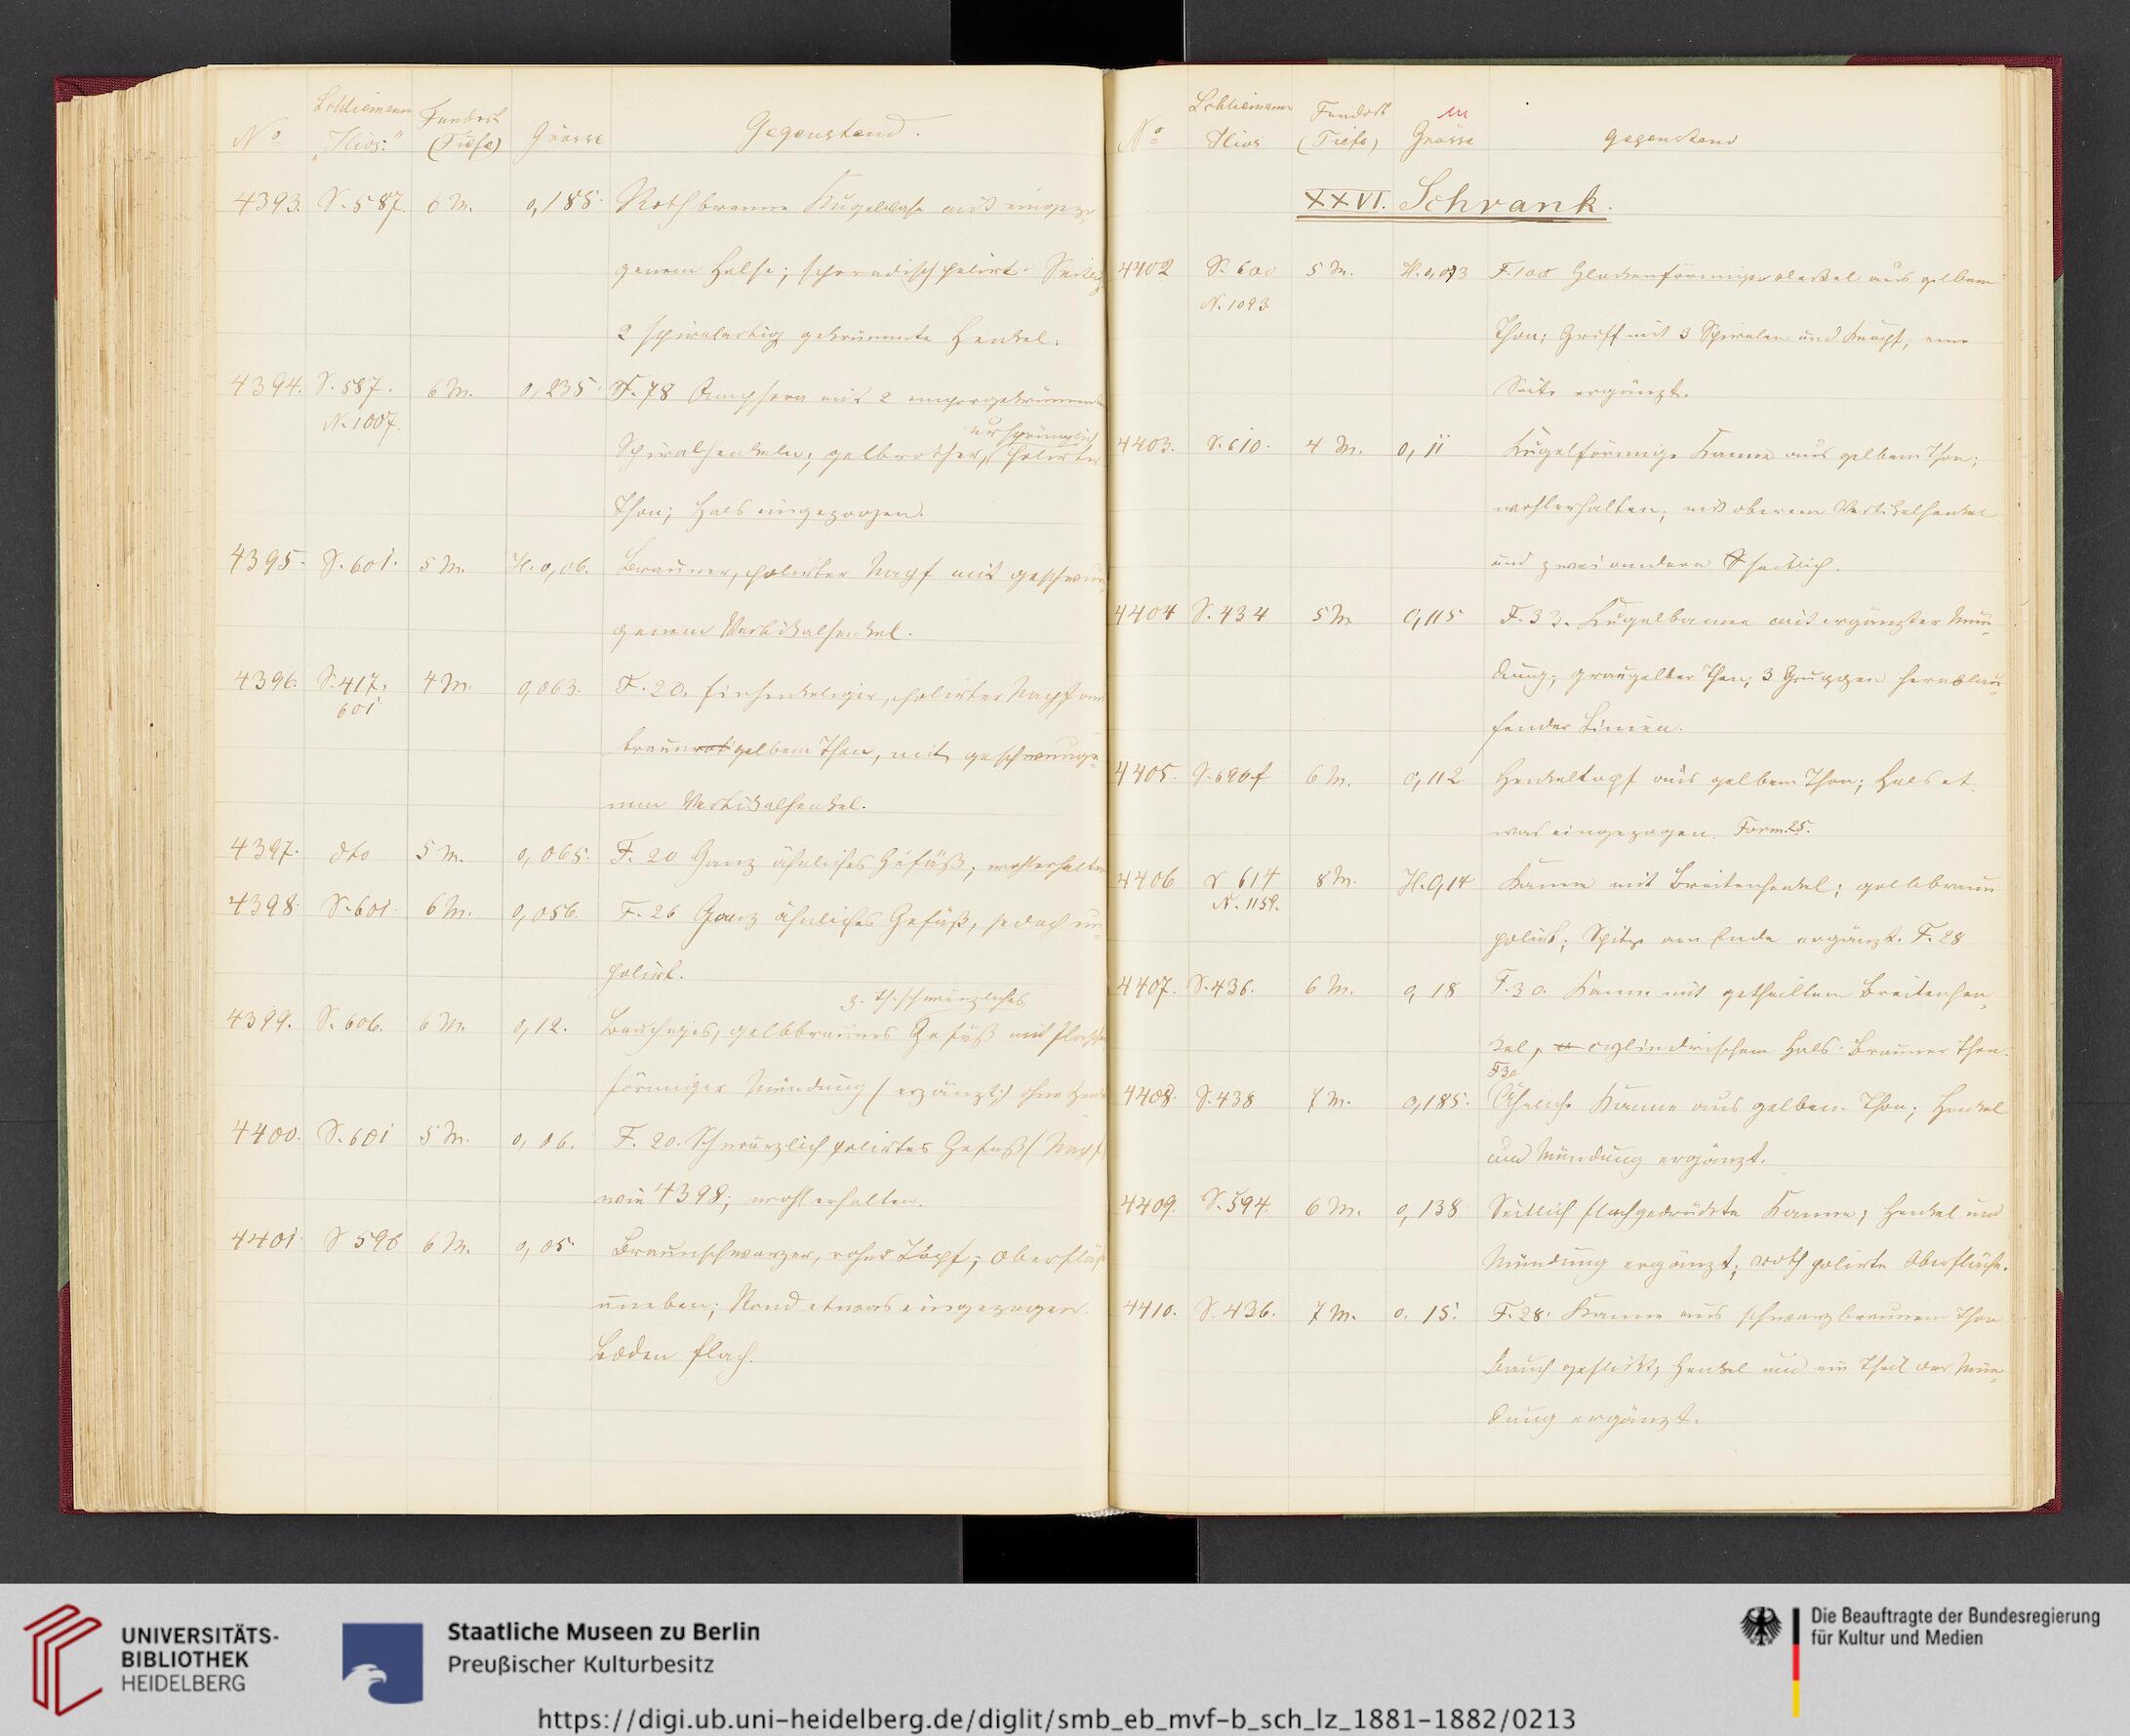 No Schliemann "Ilios:" Fundort (Tiefe) Grösse Gegenstand.
4393. S. 587. 6 M. 0,185. Rothbraune Kugelvase mit eingezo-
genem Halse; sporadisch polirt. Seitlich
2 spiralartig gekrümmte Henkel.
4394. S. 587. N. 1007. 6 M. 0,235. F. 78 Amphora mit 2 emporgekrümmten
Spiralhenkeln; gelbrother, ursprünglich polirter
Thon; Hals eingezogen.
4395. S. 601. 5 M. H. 0,06. Brauner, polirter Napf mit geschwun-
genem Vertikalhenkel.
4396. S. 417, 601 4 M. 0,063. F. 20. Einhenkeliger, polirter Napf aus
braungelbem Thon, mit geschwunge-
nem Vertikalhenkel.
4397. dto 5 M. 0,065. F. 20 Ganz ähnliches Gefäß; wohlerhalten
4398. S. 601. 6 M. 0,056. F. 26 Ganz ähnliches Gefäß, jedoch un-
polirt.
4399. S. 606. 6 M. 0,12. Bauchiges, gelbbraunes z. Th. schwärzliches Gefäß mit flaschen-
förmiger Mündung (ergänzt;) ohne Henkel
4400. S. 601 5 M. 0,06. F. 20. Schwärzlich polirtes Gefäß (Napf)
wie 4398; wohlerhalten.
4401. S 596 6 M. 0,05 Braunschwarzer, roher Topf; Oberfläche
uneben; Rand etwas eingezogen.
Boden flach.
No Schliemann Ilios Fundort (Tiefe) in Grösse Gegenstand
XXVI. Schrank.
4402 S. 600 N. 1093 5 M. H. 0,073 F. 100 Glockenförmiger Deckel aus gelbem
Thon; Griff mit 3 Spiralen und Knopf, eine
Seite ergänzt.
4403. S. 610. 4 M. 0,11 Kugelförmige Kanne aus gelbem Thon;
wohlerhalten; mit oberem Vertikalhenkel
und zwei anderen seitlich.
4404 S. 434 5 M 0,115 F. 33. Kugelkanne mit ergänzter Mün-
dung; graugelber Thon; 3 Gruppen herablau-
fender Linien.
4405. S. 596f 6 M. 0,112 Henkeltopf aus gelbem Thon; Hals et-
was eingezogen. Form. 25.
4406 S 614 N. 1159. 8 M. H. 0,14 Kanne mit Breitenhenkel; gelbbraun
polirt; Spitze am Ende ergänzt. F. 28
4407. S. 436. 6 M. 0,18 F. 30. Kanne mit getheiltem Breitenhen-
kel, cylindrischem Hals. Brauner Thon.
4408. S. 438 7 M. 0,185. F 30 Ähnliche Kanne aus gelbem Thon; Henkel
und Mündung ergänzt.
4409. S. 594. 6 M. 0,138 Seitlich flachgedrückte Kanne; Henkel und
Mündung ergänzt; roth polirte Oberfläche.
4410. S. 436. 7 M. 0.15. F. 28. Kanne aus schwarzbraunem Thon
Bauch geflickt; Henkel und ein Theil der Mün-
dung ergänzt.
UNIVERSITÄTS-
BIBLIOTHEK
HEIDELBERG
Staatliche Museen zu Berlin
Preußischer Kulturbesitz
Die Beauftragte der Bundesregierung
für Kultur und Medien
https://digi.ub.uni-heidelberg.de/diglit/smb_eb_mvf-b_sch_lz_1881-1882/0213